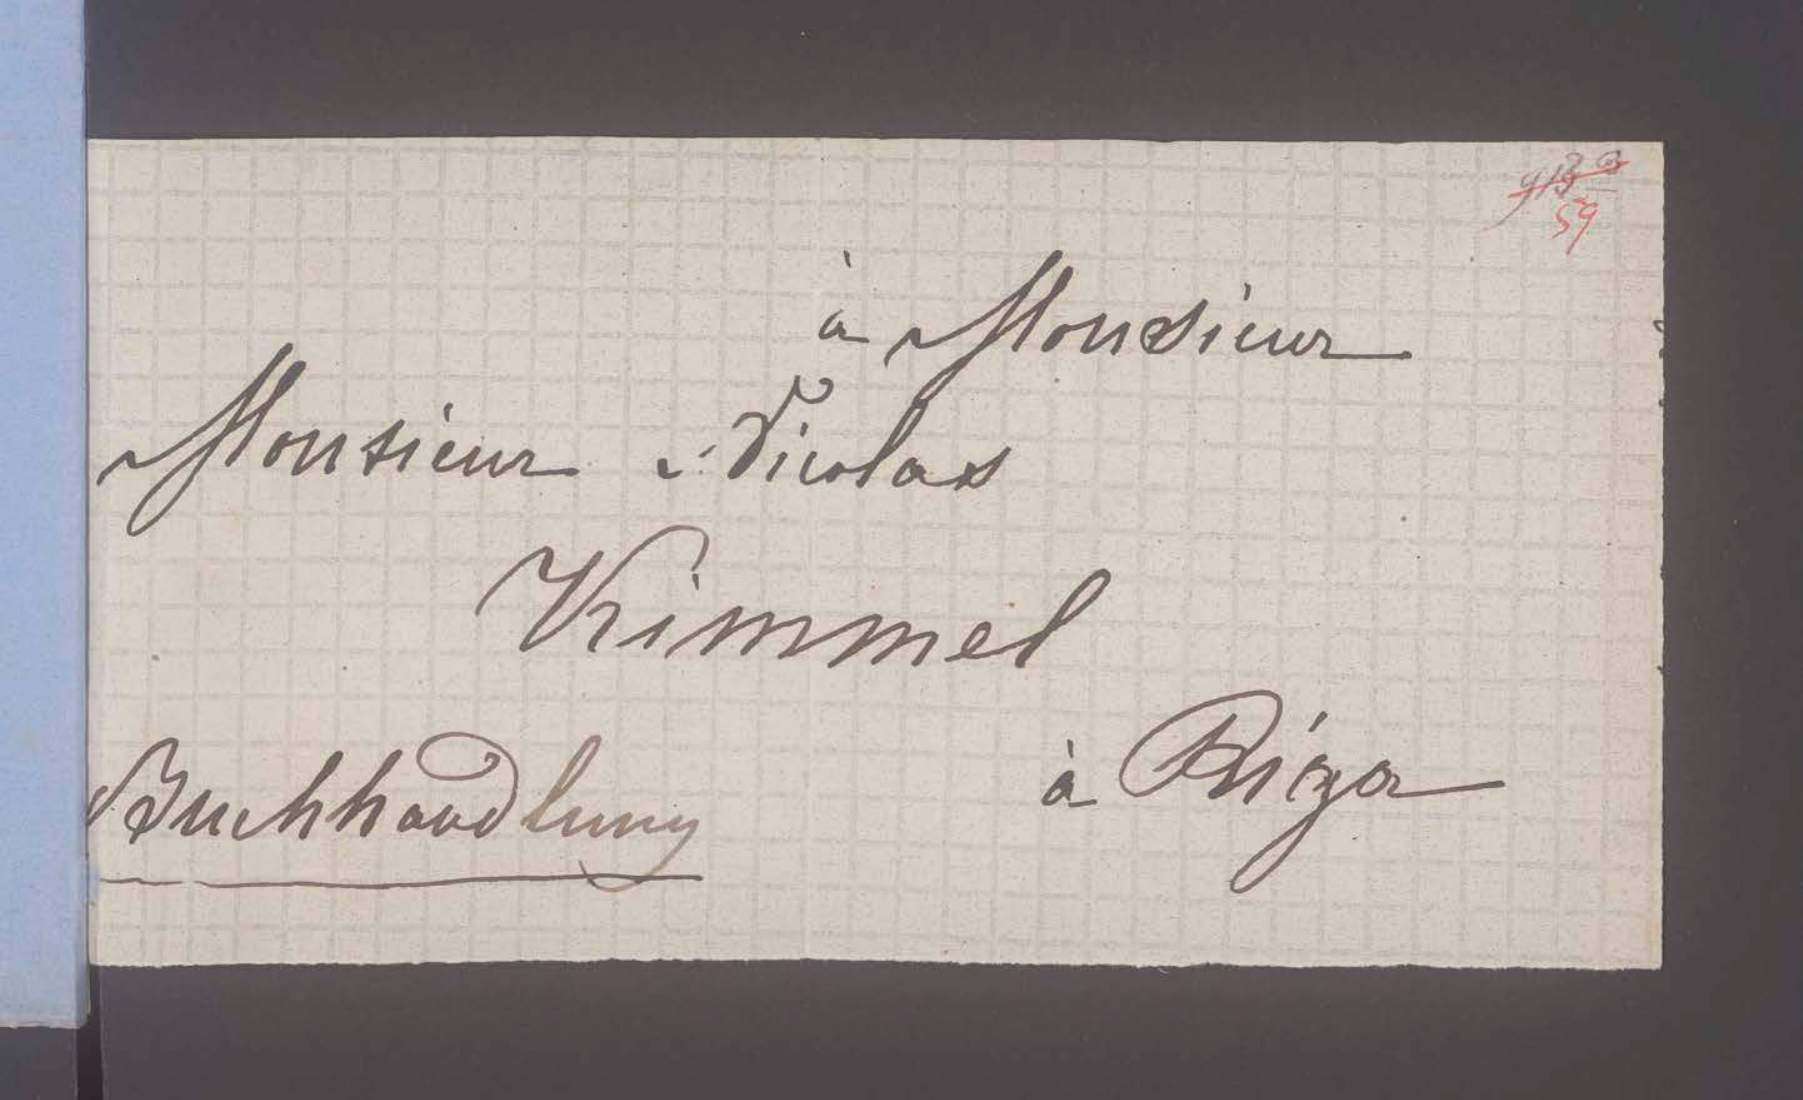 59
à Monsieur
Monsieur Nicolas
Kimmel
à Riga
Buchhandlung